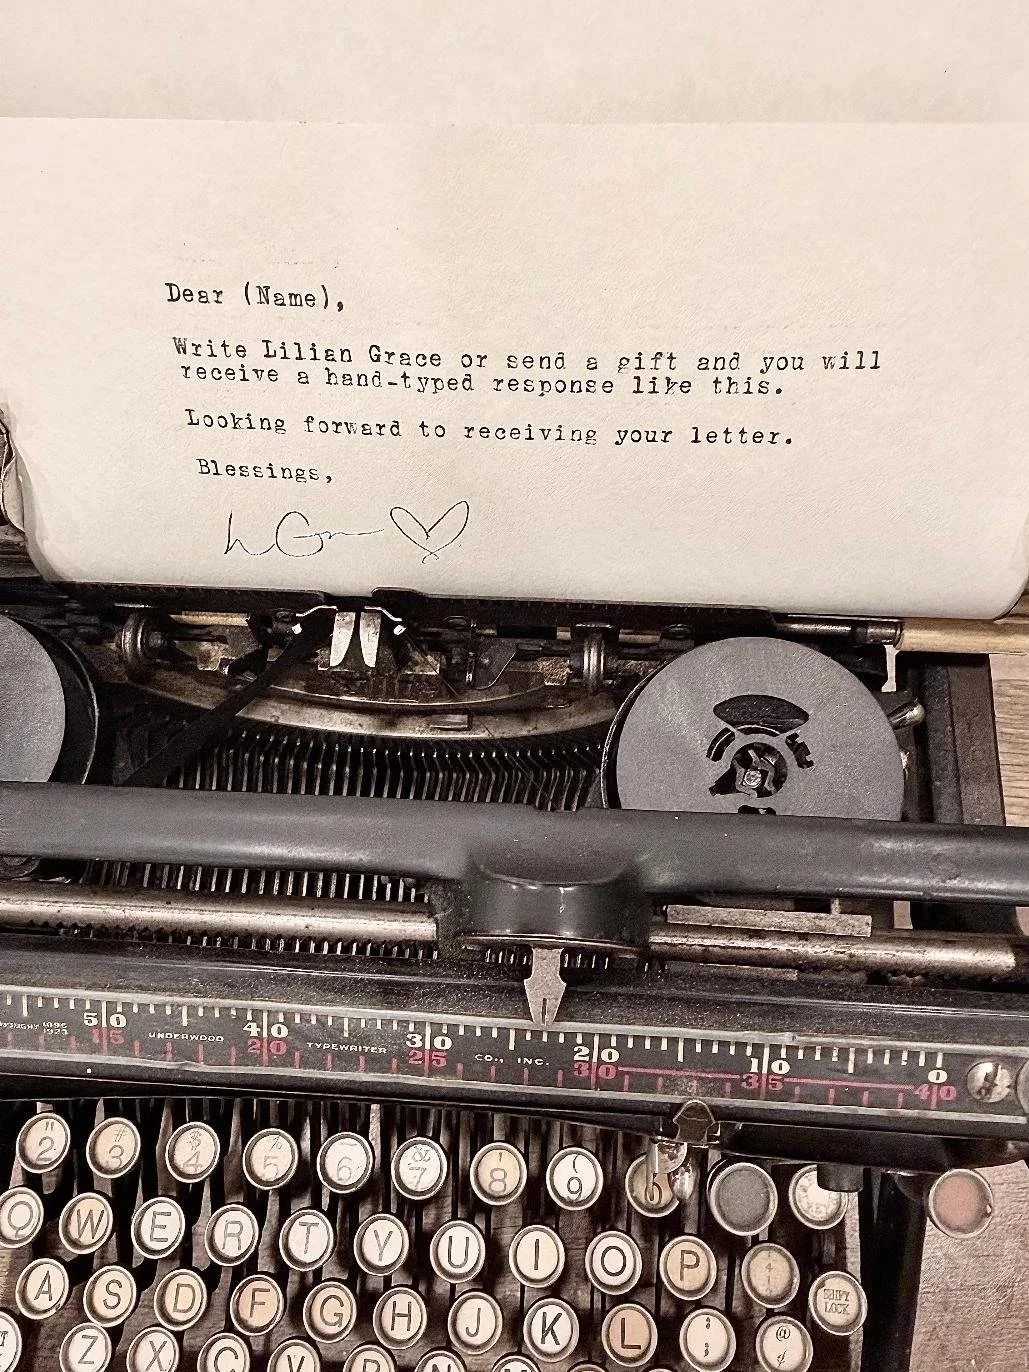 Dear (Name),
Write Lilian Grace or send a gift and you will
receive a hand-typed response like this.
Looking forward to receiving your letter.
Blessings,
5|0 4|0 3|0 2|0 1|0 0
15 UNDERWOOD 20 TYPEWRITER 25 CO., INC. 30 35 40
1923
" 2 # 3 $ 4 % 5 6 & 7 ' 8 ( 9
Q W E R T Y U I O P
A S D F G H J K L : ; @ SHIFT LOCK
Z X C V B